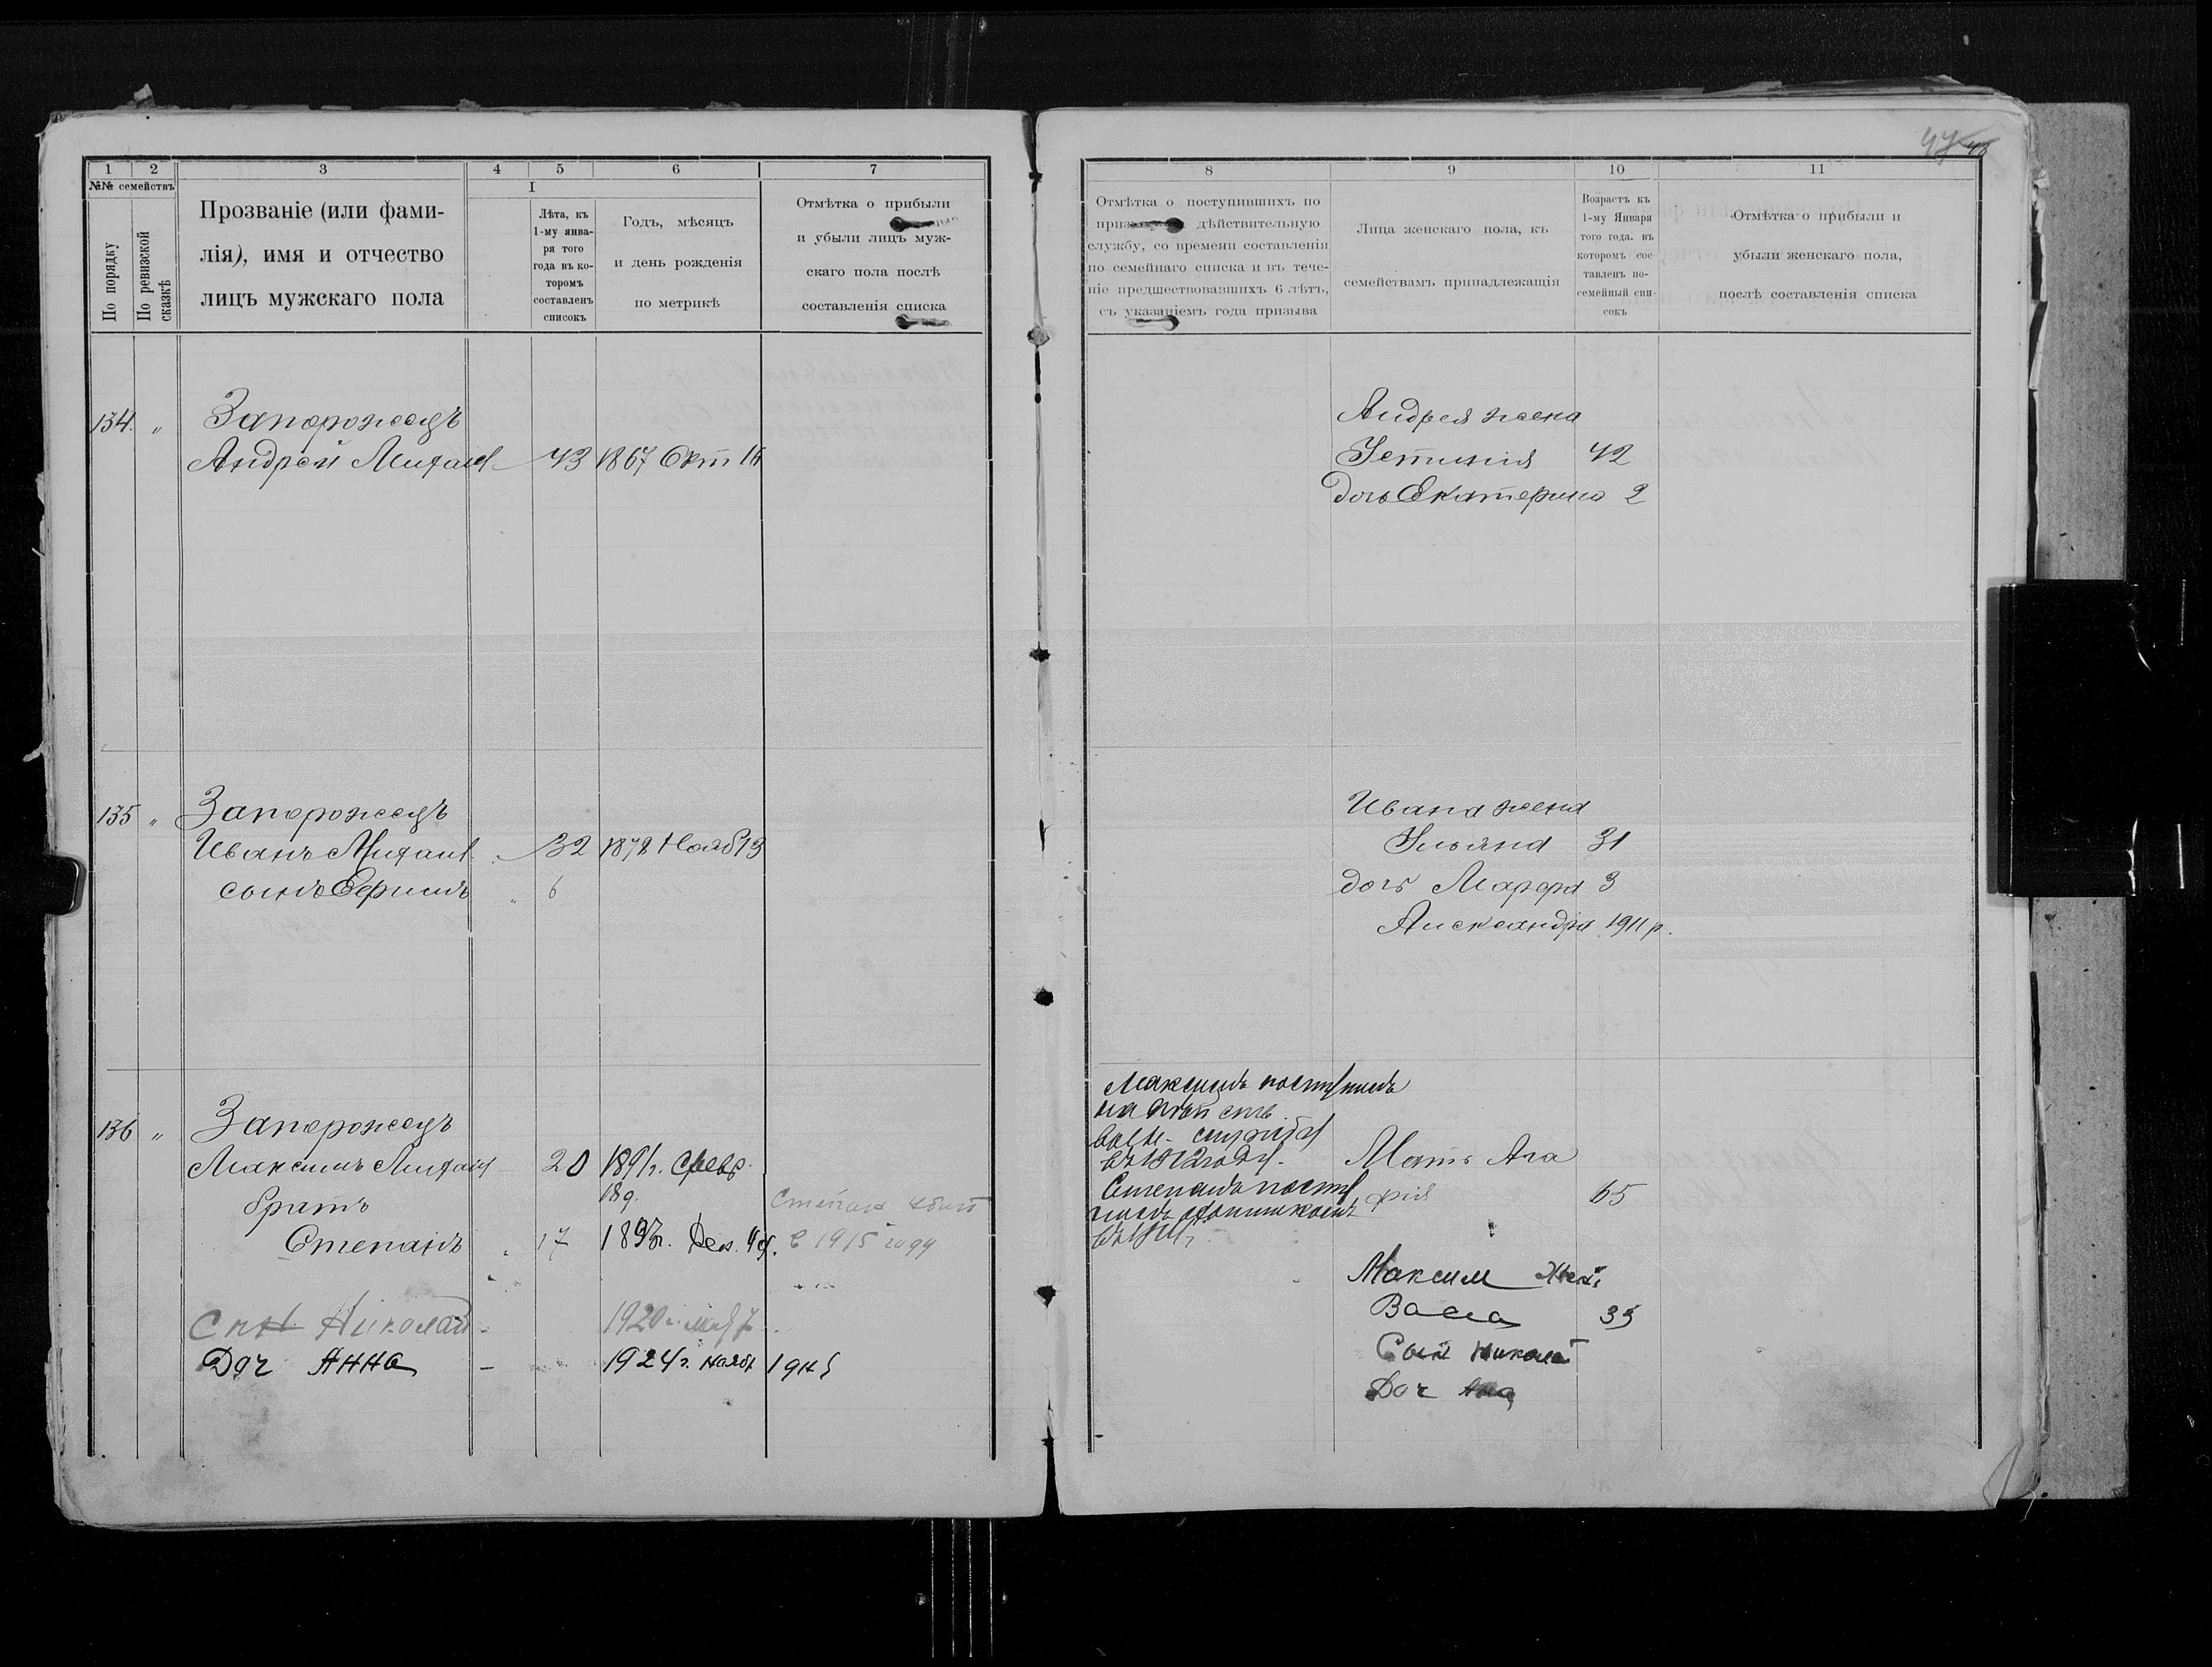 47 48
1 2 3 4 5 6 7
№№ семействъ
По порядку
По ревизской сказкѣ
Прозваніе (или фами-
лія), имя и отчество
лицъ мужскаго пола
I
Лѣта, къ
1-му янва-
ря того
года въ ко-
торомъ
составленъ
списокъ
Годъ, мѣсяцъ
и день рожденія
по метрикѣ
Отмѣтка о прибыли
и убыли лицъ муж-
скаго пола послѣ
составленія списка
134. „ Запорожецъ
Андрей Михаил 43 1867 Окт 16
135 „ Запорожецъ
Иванъ Михаил 32 1878 Нояб 13
сынъ Ефимъ „ 6
136 „ Запорожецъ
Максимъ Михаил 20 1891г. Февр.
18д.
братъ
Степанъ 17 189 г. Дек.
Степан убит
в 1915 году
Сын Николай - 1920 г. май 7
Доч Анна - 1924 г. нояб
8 9 10 11
Отмѣтка о поступившихъ по
дѣйствительную
службу, со времени составленія
по семейнаго списка и въ тече-
ніе предшествовавшихъ 6 лѣтъ,
съ указаніемъ года призыва
Лица женскаго пола, къ
семействамъ принадлежащія
Возрастъ къ
1-му Января
того года. въ
которомъ сос-
тавленъ по-
семейный спи-
сокъ
Отмѣтка о прибыли и
убыли женскаго пола,
послѣ составленія списка
Андрея жена
Устинія 42
дочь Екатерина 2
Ивана жена
Ульяна 31
дочь Марфа 3
Александра 1911 р.
Максимъ поступилъ
на
въ 1912 году.
Степанъ посту
пилъ
Мать Ага
фія 65
Максим жена
Васса 35
Сын Николай
Доч Анна